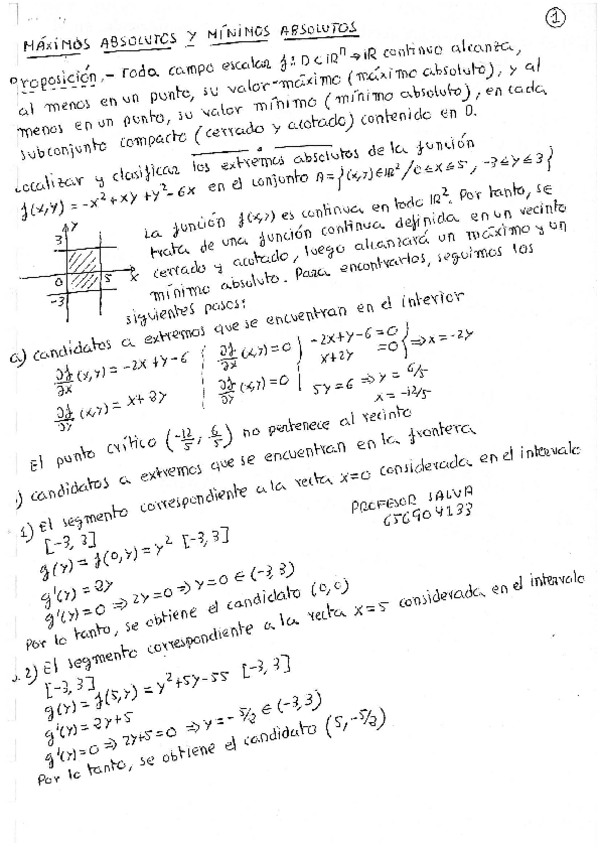 1
MÁXIMOS ABSOLUTOS Y MÍNIMOS ABSOLUTOS
Proposición.- Toda campo escalar f: D⊂ℝⁿ→ℝ continuo alcanza,
al menos en un punto, su valor máximo (máximo absoluto), y al
menos en un punto, su valor mínimo (mínimo absoluto), en cada
subconjunto compacto (cerrado y acotado) contenido en D.
Localizar y clasificar los extremos absolutos de la función
f(x,y) = -x²+xy+y²-6x en el conjunto A={(x,y)∈ℝ²/0≤x≤5, -3≤y≤3}
La función f(x,y) es continua en todo ℝ². Por tanto, se
trata de una función continua definida en un recinto
cerrado y acotado, luego alcanzará un máximo y un
mínimo absoluto. Para encontrarlos, seguimos los
siguientes pasos:
3 Y
0 5 X
-3
a) candidatos a extremos que se encuentran en el interior
∂f/∂x (x,y) = -2x+y-6 ∂f/∂x (x,y)=0 -2x+y-6=0
∂f/∂y (x,y) = x+2y ∂f/∂y (x,y)=0 x+2y =0 ⇒ x=-2y
5y=6 ⇒ y = 6/5
x = -12/5
El punto crítico (-12/5, 6/5) no pertenece al recinto
) candidatos a extremos que se encuentran en la frontera
1) El segmento correspondiente a la recta x=0 considerada en el intervalo
[-3, 3]
PROFESOR SALVA
656904133
g(y) = f(0,y) = y² [-3, 3]
g'(y) = 2y
g'(y)=0 ⇒ 2y=0 ⇒ y=0 ∈ (-3, 3)
Por lo tanto, se obtiene el candidato (0,0)
.2) El segmento correspondiente a la recta x=5 considerada en el intervalo
[-3, 3]
g(y) = f(5,y) = y²+5y-55 [-3, 3]
g'(y) = 2y+5
g'(y)=0 ⇒ 2y+5=0 ⇒ y=-5/2 ∈ (-3,3)
Por lo tanto, se obtiene el candidato (5, -5/2)